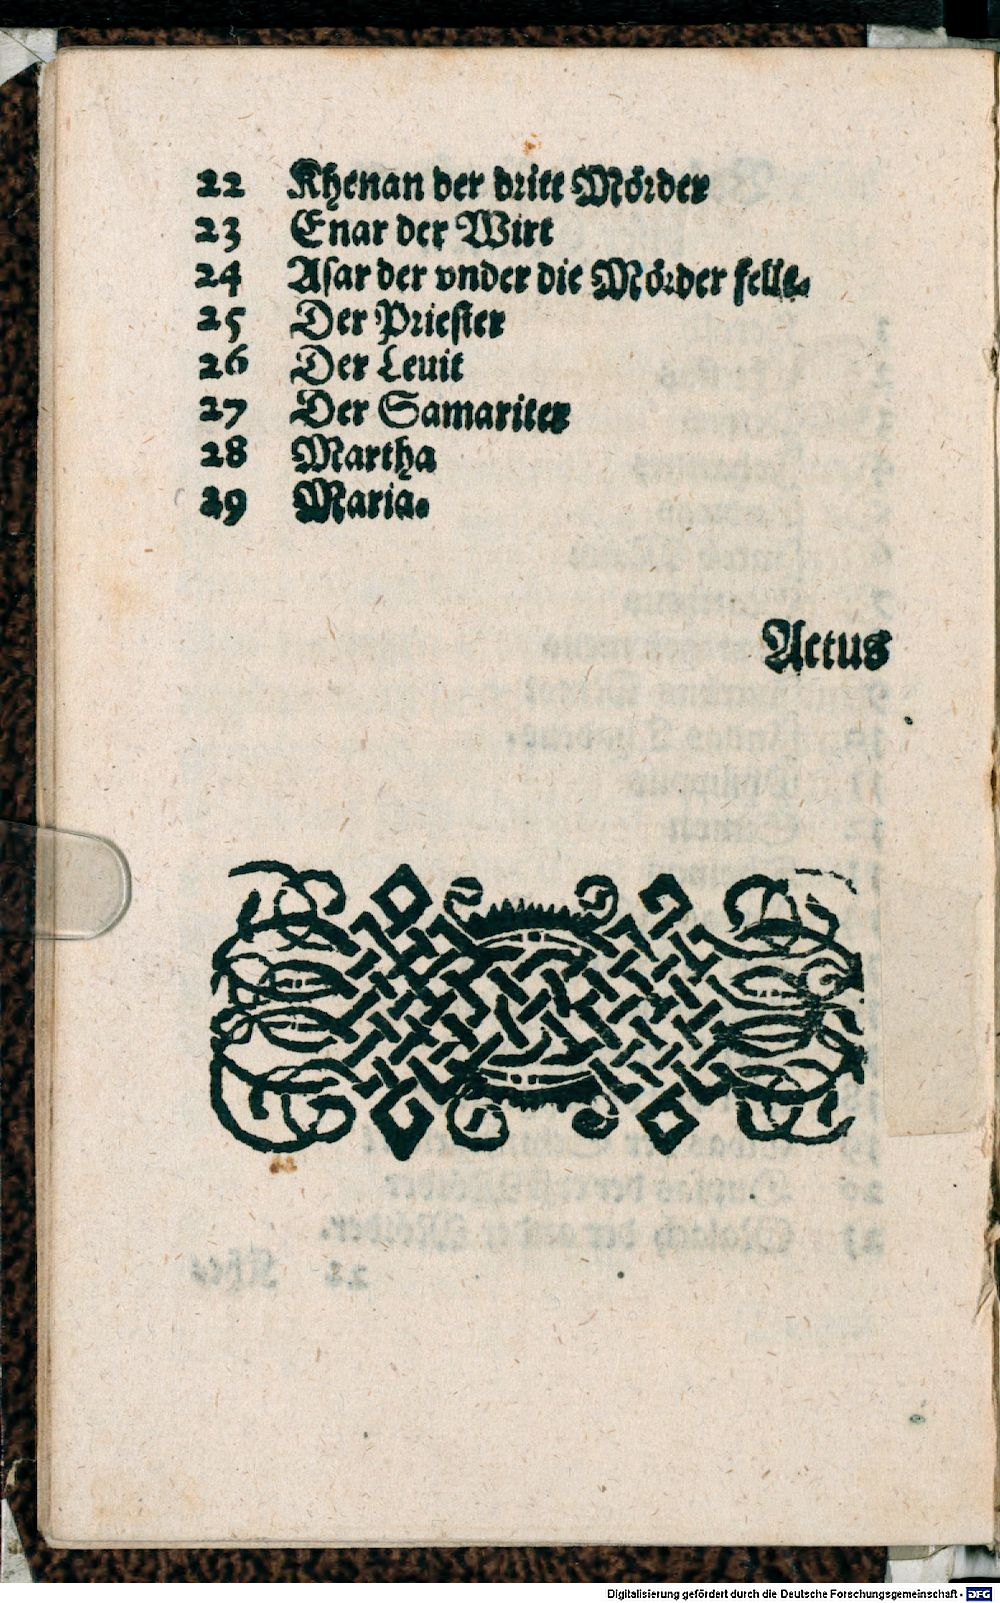 22 Khenan der dritt Mörder
23 Enar der Wirt
24 Asar der vnder die Mörder felle.
25 Der Priester
26 Der Leuit
27 Der Samariter
28 Martha
29 Maria.
Actus
Digitalisierung gefördert durch die Deutsche Forschungsgemeinschaft - DFG